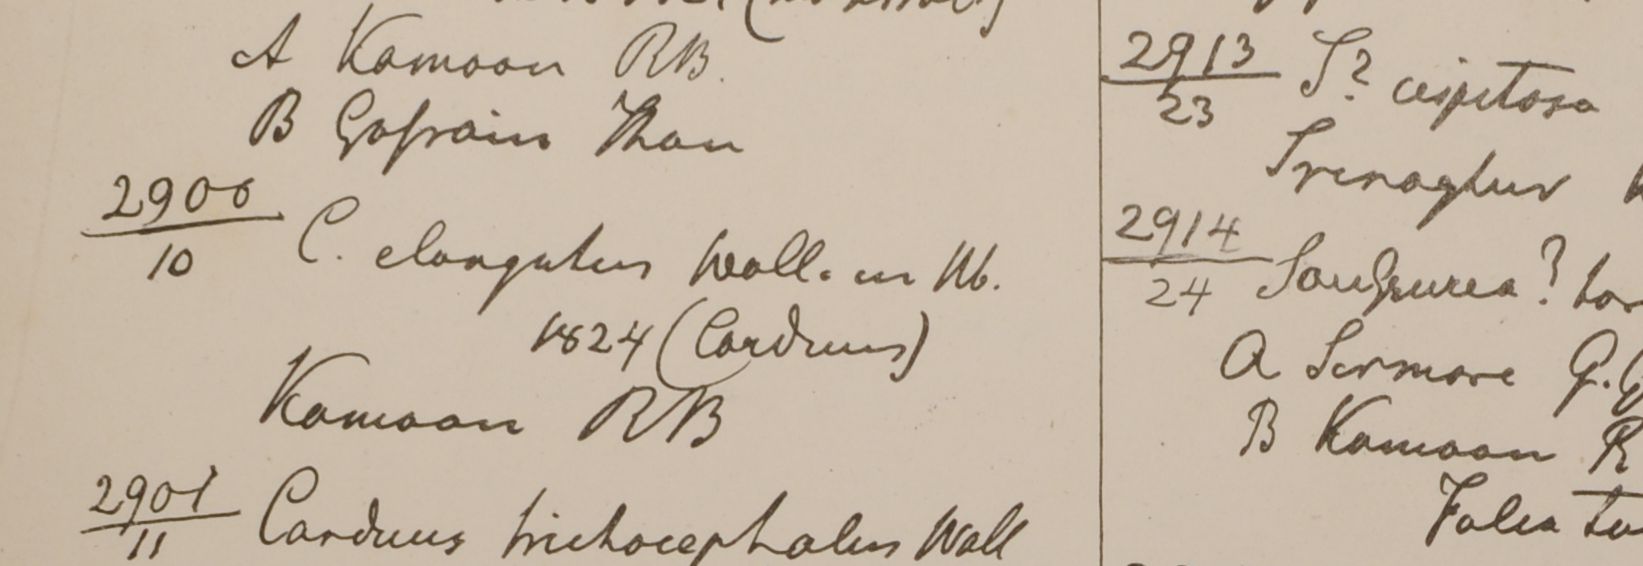 A Kamaon RB.
B Gosrain Than
2900
10
C. elongatus Wall. in Hb.
1824 (Carduus)
Kamaon RB
2901
11
Carduus trichocephalus Wall
2913
23
S? cespitosa
Srenaghur
2914
24
Saussurea?
A Sirmore G.G
B Kamaon R
Folia